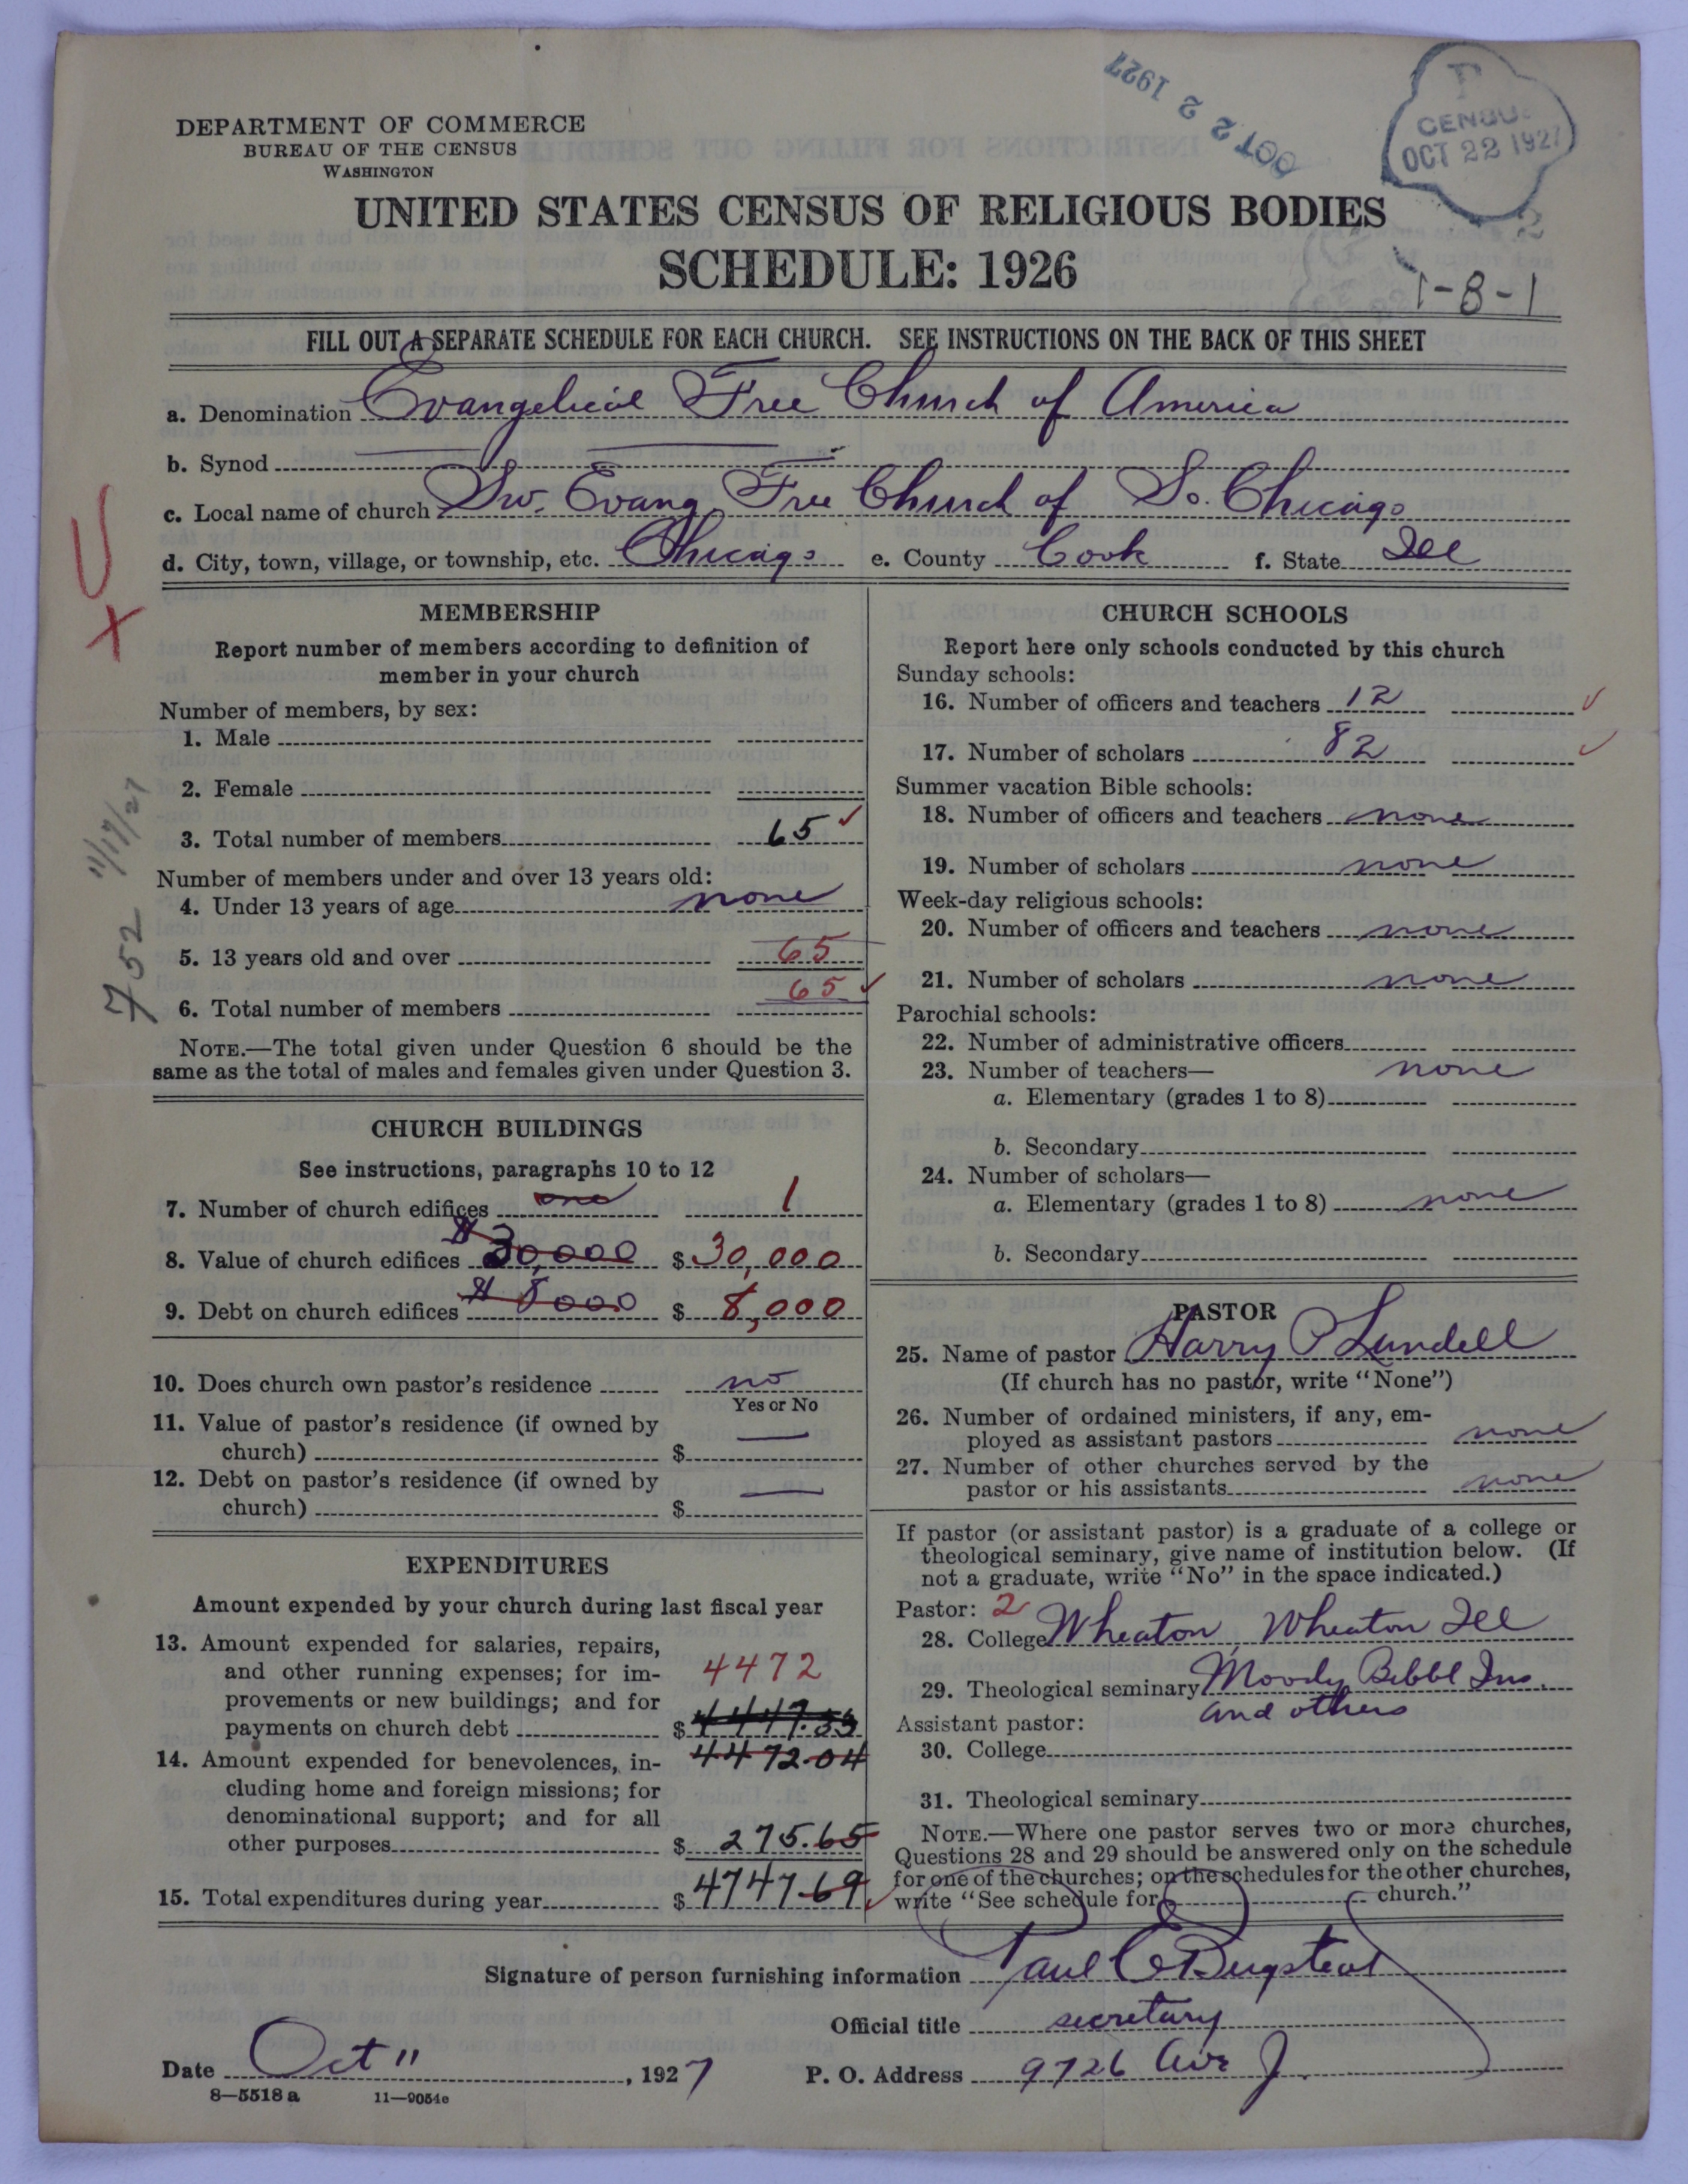 OCT 22 1927
CENSUS
OCT 22 1927
DEPARTMENT OF COMMERCE
BUREAU OF THE CENSUS
WASHINGTON
UNITED STATES CENSUS OF RELIGIOUS BODIES
SCHEDULE: 1926
1-8-1
FILL OUT A SEPARATE SCHEDULE FOR EACH CHURCH. SEE INSTRUCTIONS ON THE BACK OF THIS SHEET
a. Denomination Evangelical Free Church of America
b. Synod
c. Local name of church Sw. Evang Free Church of So. Chicago
d. City, town, village, or township, etc. Chicago e. County Cook f. State Ill
752 11/17/27
MEMBERSHIP
Report number of members according to definition of
member in your church
Number of members, by sex:
1. Male
2. Female
3. Total number of members 65
Number of members under and over 13 years old:
4. Under 13 years of age none
5. 13 years old and over 65
6. Total number of members 65
NOTE.—The total given under Question 6 should be the
same as the total of males and females given under Question 3.
CHURCH BUILDINGS
See instructions, paragraphs 10 to 12
7. Number of church edifices one 1
8. Value of church edifices $30,000 $ 30,000
9. Debt on church edifices $8000 $ 8,000
10. Does church own pastor's residence no
Yes or No
11. Value of pastor's residence (if owned by
church) $ —
12. Debt on pastor's residence (if owned by
church) $ —
EXPENDITURES
Amount expended by your church during last fiscal year
13. Amount expended for salaries, repairs,
and other running expenses; for im- 4472
provements or new buildings; and for
payments on church debt $
4472.04
14. Amount expended for benevolences, in-
cluding home and foreign missions; for
denominational support; and for all
other purposes $ 275.65
15. Total expenditures during year $ 4747.69
CHURCH SCHOOLS
Report here only schools conducted by this church
Sunday schools:
16. Number of officers and teachers 12
17. Number of scholars 82
Summer vacation Bible schools:
18. Number of officers and teachers none
19. Number of scholars none
Week-day religious schools:
20. Number of officers and teachers none
21. Number of scholars none
Parochial schools:
22. Number of administrative officers
23. Number of teachers— none
a. Elementary (grades 1 to 8)
b. Secondary
24. Number of scholars—
a. Elementary (grades 1 to 8) none
b. Secondary
PASTOR
25. Name of pastor Harry P Lundell
(If church has no pastor, write "None")
26. Number of ordained ministers, if any, em-
ployed as assistant pastors none
27. Number of other churches served by the
pastor or his assistants none
If pastor (or assistant pastor) is a graduate of a college or
theological seminary, give name of institution below. (If
not a graduate, write "No" in the space indicated.)
Pastor: 2
28. College Wheaton, Wheaton Ill
29. Theological seminary Moody Bibbl Ins.
and others
Assistant pastor:
30. College
31. Theological seminary
NOTE.—Where one pastor serves two or more churches,
Questions 28 and 29 should be answered only on the schedule
for one of the churches; on the schedules for the other churches,
write "See schedule for church."
Signature of person furnishing information Paul
Official title secretary
Date Oct 11, 1927 P. O. Address 9726 Ave J.
8—5518 a 11—9054c